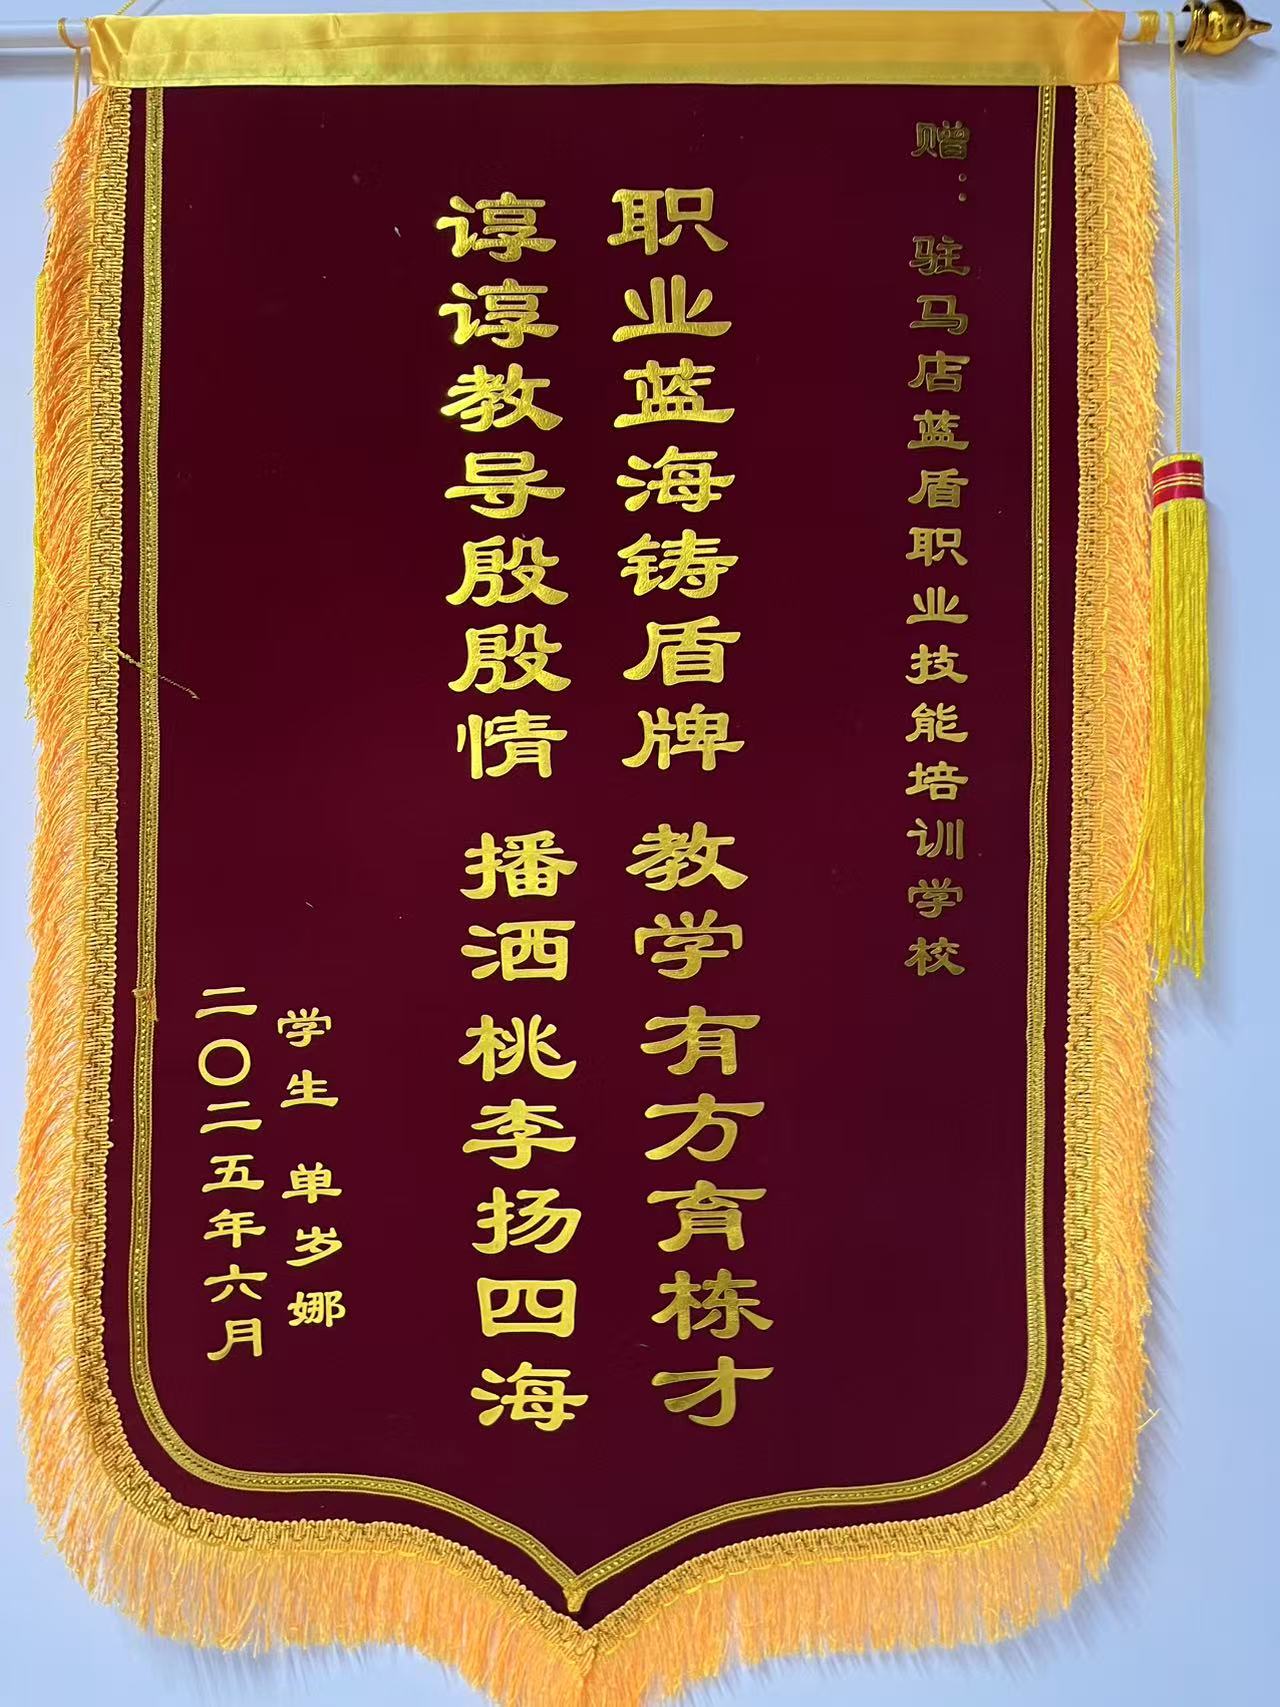 赠：驻马店蓝盾职业技能培训学校
职业蓝海铸盾牌 教学有方育栋才
谆谆教导殷殷情 播洒桃李扬四海
学生 单岁娜
二〇二五年六月